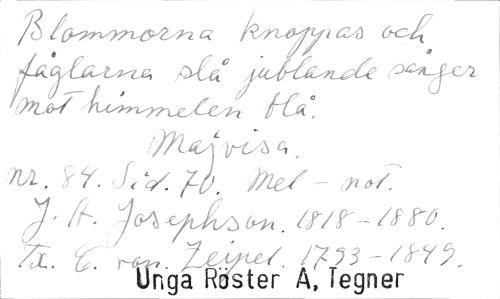 Blommorna knoppas och
fåglarna slå jublande sånger
mot himmelen blå.
Majvisa.
nr. 84. Sid. 70. Mel - not.
J. A. Josephson. 1818-1880.
Tx. C. von Zeipel. 1793-1849.
Unga Röster A, Tegner